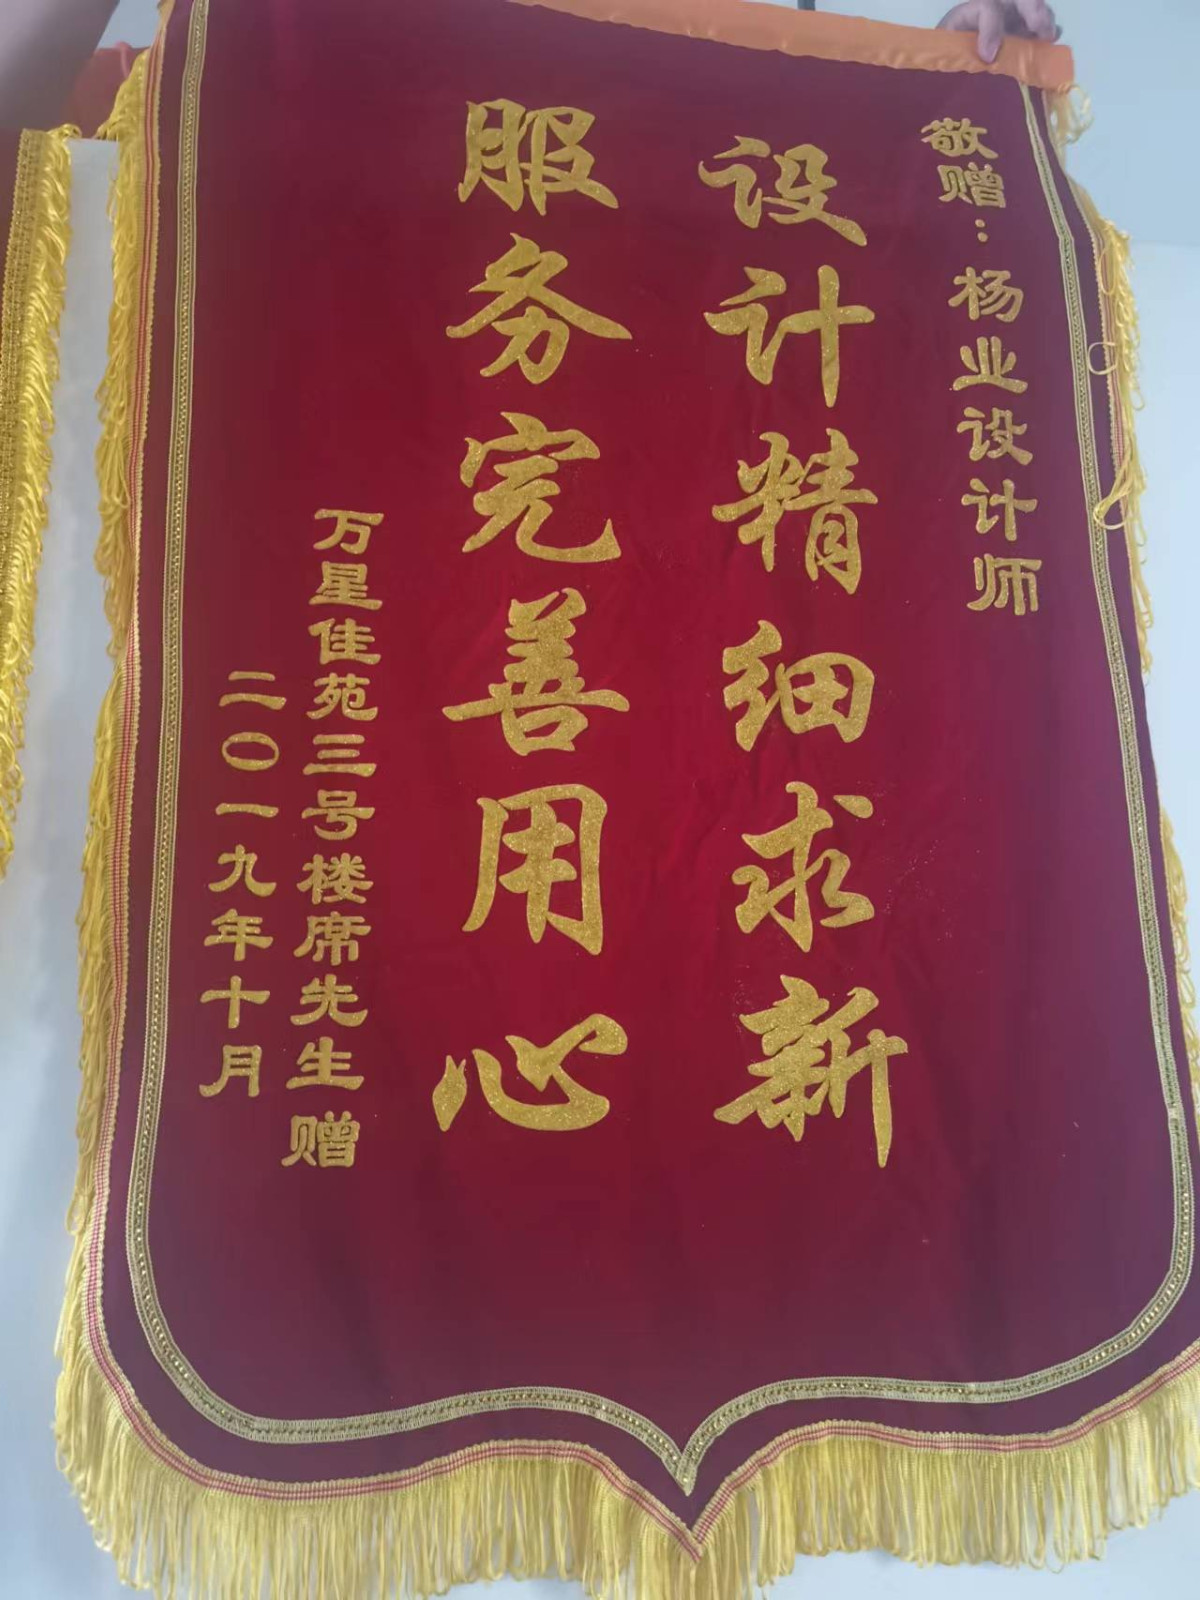 敬赠：杨业设计师
设计精细求新
服务完善用心
万星佳苑三号楼席先生赠
二〇一九年十月